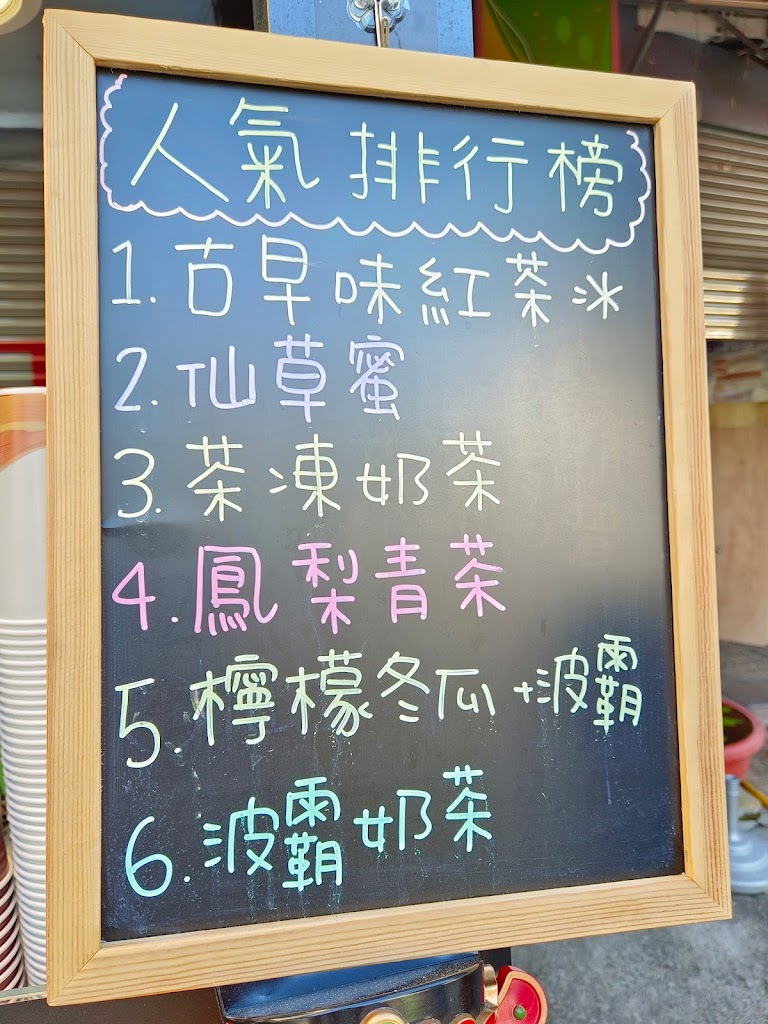 人氣排行榜
1. 古早味紅茶冰
2. 仙草蜜
3. 茶凍奶茶
4. 鳳梨青茶
5. 檸檬冬瓜+波霸
6. 波霸奶茶